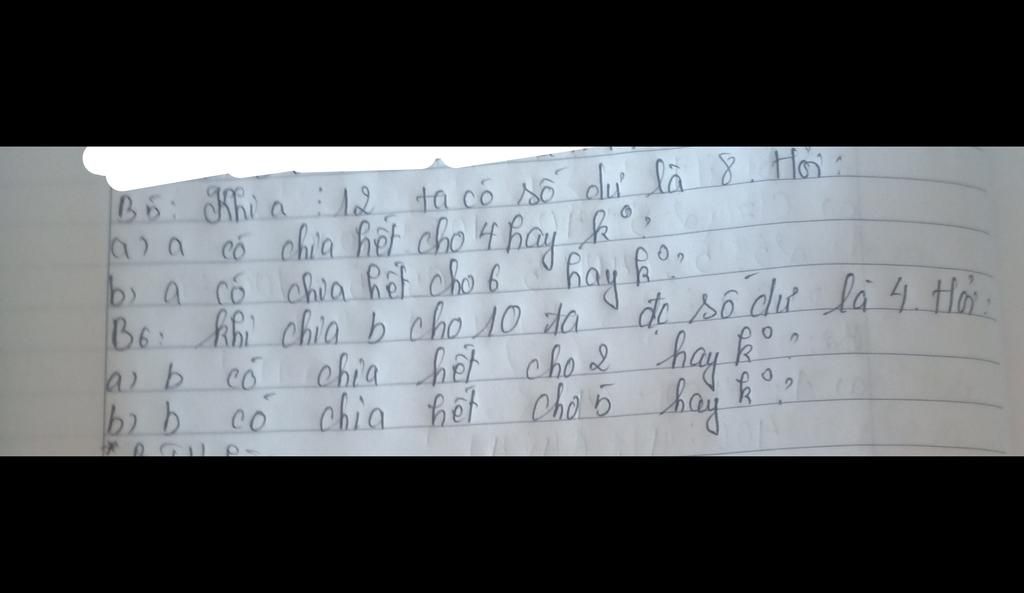 B5: Khi a : 12 ta có số dư là 8. Hỏi:
a) a có chia hết cho 4 hay k°?
b) a có chia hết cho 6 hay k°?
B6: Khi chia b cho 10 ta đc số dư là 4. Hỏi:
a) b có chia hết cho 2 hay k°?
b) b có chia hết cho 5 hay k°?